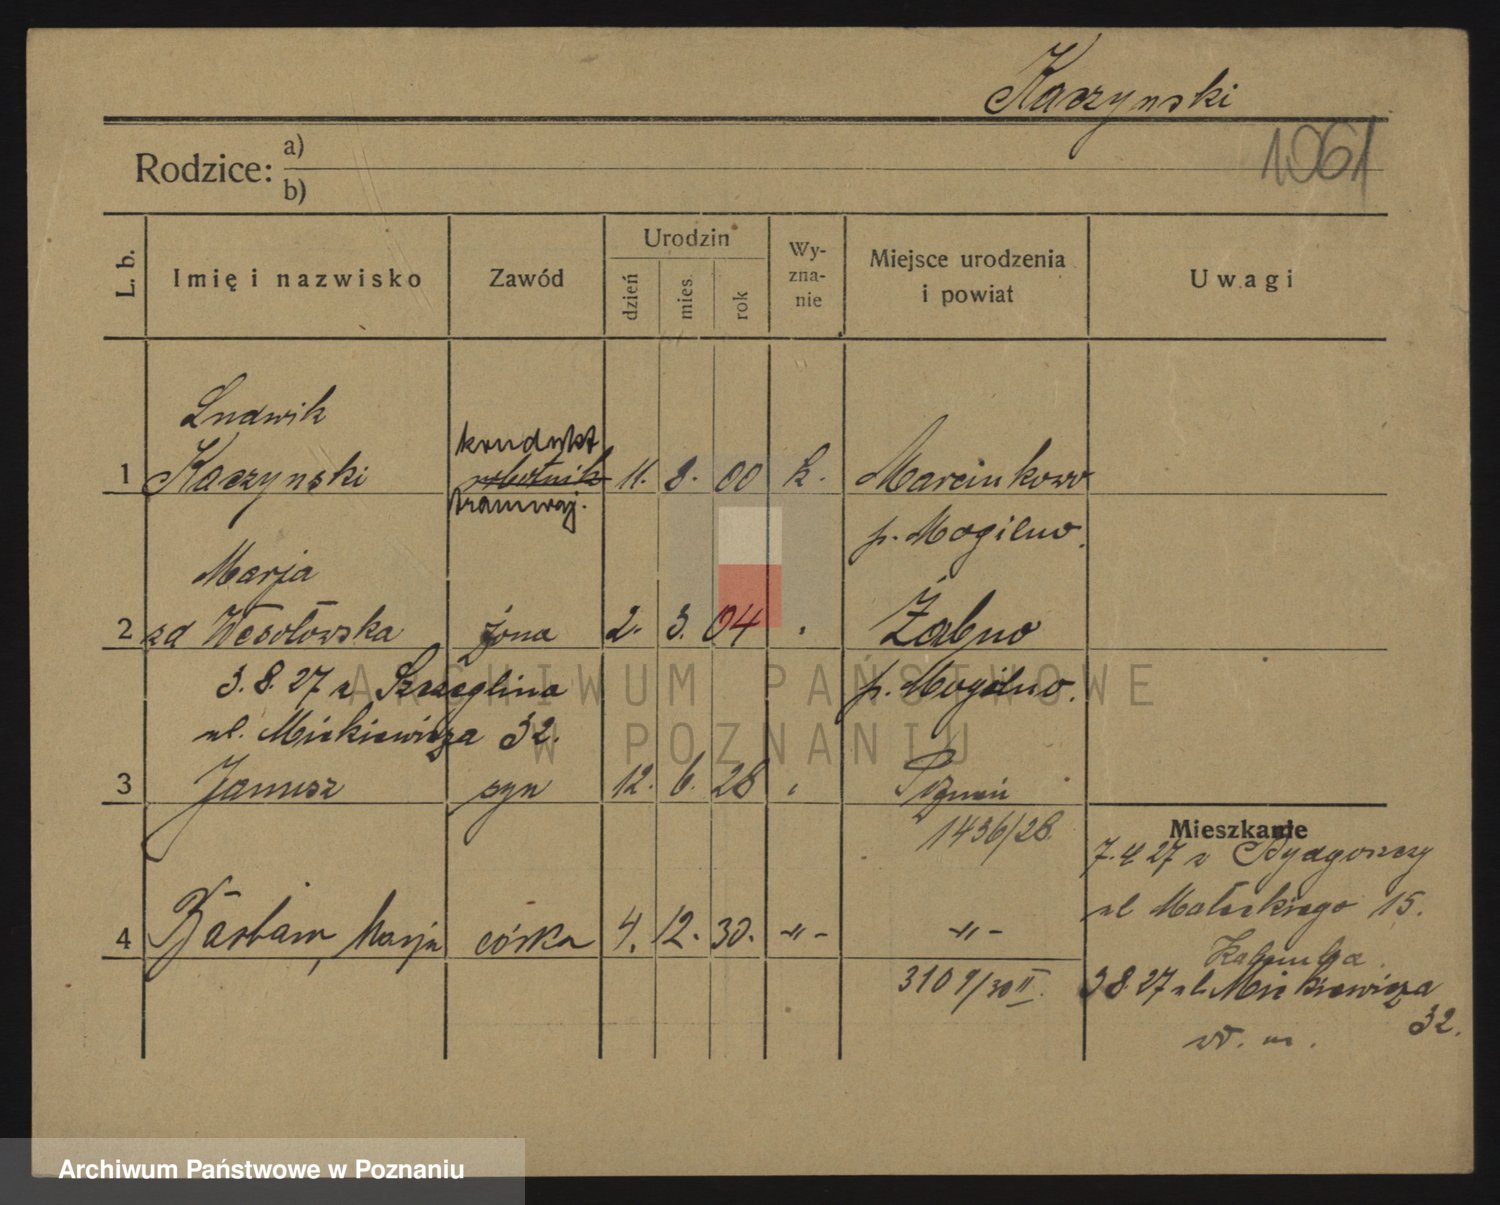 Kaczynski
1061
Rodzice: a)
b)
L. b.
Imię i nazwisko
Zawód
Urodzin
dzień
mies.
rok
Wy-
zna-
nie
Miejsce urodzenia
i powiat
Uwagi
Ludwik
kondukt.
1 Kaczynski robotnik 11. 8. 00 k. Marcinkowo
tramwaj.
p. Mogilno.
Marja
2 zd Wesołowska żona 2. 3. 04 Żabno
3.8.27 z Szczeglina p. Mogilno.
ul. Mickiewicza 32.
3 Janusz syn 12. 6. 28 Poznań
1436/28.
Mieszkanie
7.4.27 z Bydgoszczy
ul Małeckiego 15.
4 Barbara, Marja córka 4. 12. 30. -"- -"-
3109/30 II.
3 8.27 ul. Mickiewicza
32.
w. m.
ARCHIWUM PAŃSTWOWE
W POZNANIU
Archiwum Państwowe w Poznaniu